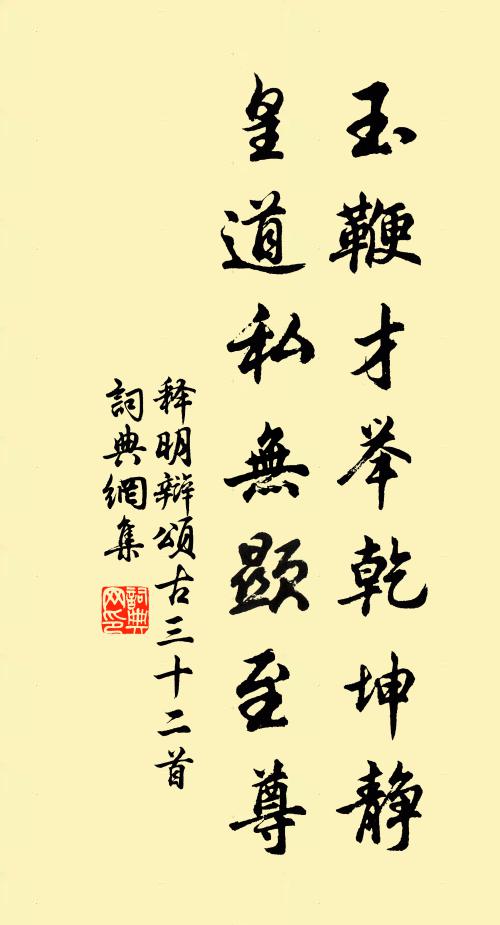 玉鞭才举乾坤静
皇道私無顕至尊
释明辩頌古三十二首
詞典網集
詞典网印